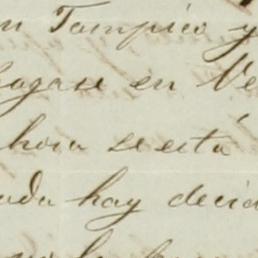 en Tampico y
hagase en Ve
hora se está
ada hay decid